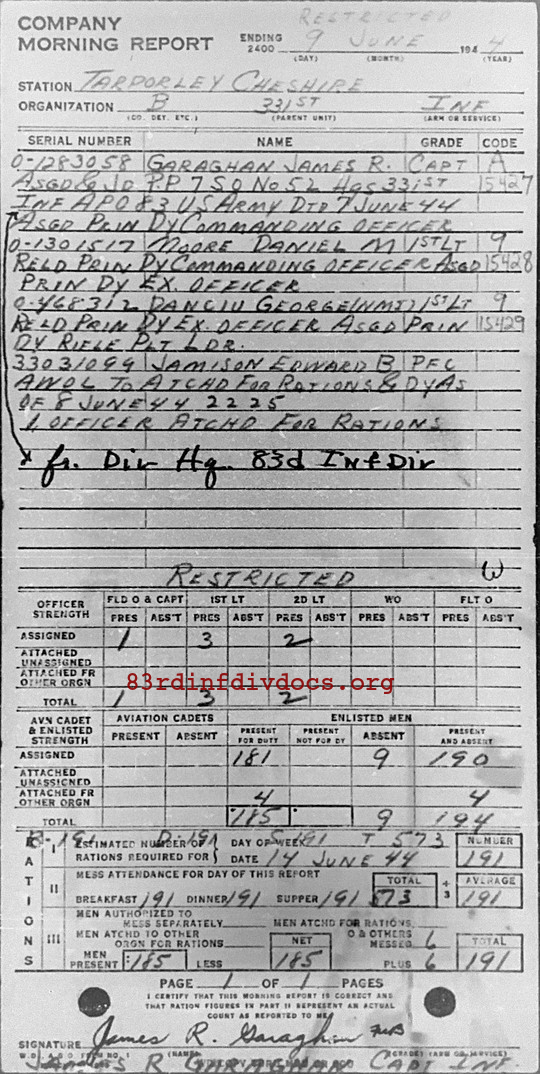 RESTRICTED
COMPANY
MORNING REPORT
ENDING
2400
9 JUNE 1944
(DAY) (MONTH) (YEAR)
STATION TARPORLEY CHESHIRE
ORGANIZATION B 331ST INF
(CO. DET. ETC.) (PARENT UNIT) (ARM OR SERVICE)
SERIAL NUMBER NAME GRADE CODE
O-1283058 GARAGHAN JAMES R. CAPT A
ASGD & JD P.P 7 SO NO 52 HQS 331ST 15427
INF APO 83 US ARMY DTD 7 JUNE 44
ASGD PRIN DY COMMANDING OFFICER
O-1301517 MOORE DANIEL M 1ST LT 9
RELD PRIN DY COMMANDING OFFICER ASGD 15428
PRIN DY EX. OFFICER
O-468312 DANCIU GEORGE (NMI) 1ST LT 9
RELD PRIN DY EX. OFFICER ASGD PRIN 15429
DY RIFLE PLT LDR.
33031099 JAMISON EDWARD B PFC
AWOL TO ATCHD FOR RATIONS & DY AS
OF 8 JUNE 44 2225
1 OFFICER ATCHD FOR RATIONS
* fr. Div Hq. 83d Inf Div
RESTRICTED W
OFFICER STRENGTH FLD O & CAPT 1ST LT 2D LT WO FLT O
PRES ABS'T PRES ABS'T PRES ABS'T PRES ABS'T PRES ABS'T
ASSIGNED 1 3 2
ATTACHED UNASSIGNED
ATTACHED FR OTHER ORGN
83rdinfdivdocs.org
TOTAL 1 3 2
AVN CADET & ENLISTED STRENGTH AVIATION CADETS ENLISTED MEN
PRESENT ABSENT PRESENT FOR DUTY PRESENT NOT FOR DY ABSENT PRESENT AND ABSENT
ASSIGNED 181 9 190
ATTACHED UNASSIGNED
ATTACHED FR OTHER ORGN 4 4
TOTAL 185 9 194
B-191 D-191 S-191 T 573
RATIONS
I ESTIMATED NUMBER OF RATIONS REQUIRED FOR DAY OF WEEK NUMBER
DATE 14 JUNE 44 191
II MESS ATTENDANCE FOR DAY OF THIS REPORT TOTAL ÷ 3 AVERAGE
BREAKFAST 191 DINNER 191 SUPPER 191 573 191
III MEN AUTHORIZED TO MESS SEPARATELY MEN ATCHD FOR RATIONS
MEN ATCHD TO OTHER ORGN FOR RATIONS NET O & OTHERS MESSED 6 TOTAL
MEN PRESENT 185 LESS 185 PLUS 6 191
PAGE 1 OF 1 PAGES
I CERTIFY THAT THIS MORNING REPORT IS CORRECT AND
THAT RATION FIGURES IN PART II REPRESENT AN ACTUAL
COUNT AS REPORTED TO ME
SIGNATURE James R. Garaghan
W.D., A.G.O. FORM NO. 1 (NAME) (GRADE) (ARM OR SERVICE)
JAMES R GARAGHAN CAPT INF.